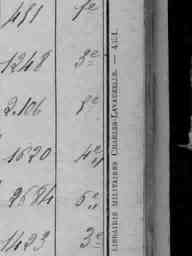 481 1e
1248 3e
2.106 8e
1620 4e
2684 5e
1423 3e
LIBRAIRIE MILITAIRE CHARLES-LAVAUZELLE. — 421.